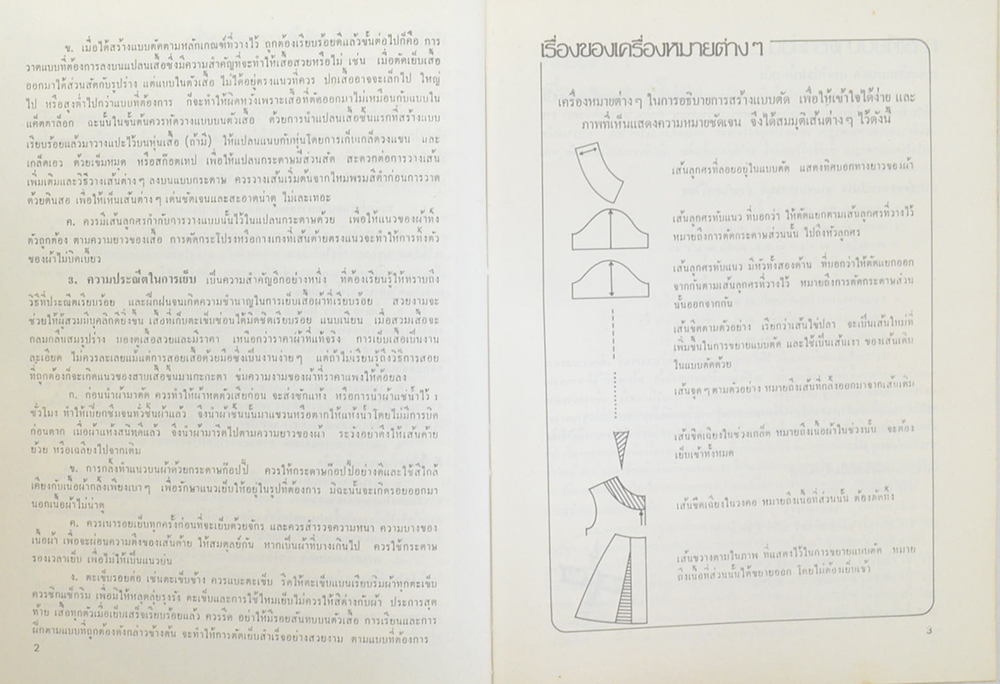 ข. เมื่อได้สร้างแบบตัดตามหลักเกณฑ์ที่วางไว้ ถูกต้องเรียบร้อยดีแล้วขั้นต่อไปก็คือ การ
วาดแบบที่ต้องการลงบนแปลนเสื้อซึ่งมีความสำคัญที่จะทำให้เสื้อสวยหรือไม่ เช่น เมื่อตัดเย็บเสื้อ
ออกมาได้ส่วนสัดกับรูปร่าง แต่แบบในตัวเสื้อ ไม่ได้อยู่ตรงแนวที่ควร ปกเสื้ออาจจะเล็กไป ใหญ่
ไป หรือสูงต่ำไปกว่าแบบที่ต้องการ ก็จะทำให้ผิดหวังเพราะเสื้อที่ตัดออกมาไม่เหมือนกับแบบใน
แค็ตตาล็อก ฉะนั้นในขั้นต้นควรหัดวางแบบบนตัวเสื้อ ด้วยการนำแปลนเสื้อชิ้นแรกที่สร้างแบบ
เรียบร้อยแล้วมาวางแปะไว้บนหุ่นเสื้อ (ถ้ามี) ให้แปลนแนบกับหุ่นโดยการเก็บเกล็ดวงแขน และ
เกล็ดเอว ด้วยเข็มหมุด หรือสก๊อตเทป เพื่อให้แปลนกระดาษมีส่วนสัด สะดวกต่อการวางเส้น
เพิ่มเติมและวิธีวางเส้นต่างๆ ลงบนแบบกระดาษ ควรวางเส้นเริ่มต้นจากไหมพรมสีดำก่อนการวาด
ด้วยดินสอ เพื่อให้เห็นเส้นต่างๆ เด่นชัดเจนและสะอาดน่าดู ไม่เลอะเทอะ
ค. ควรมีเส้นลูกศรกำกับการวางแบบนั้นไว้ในแปลนกระดาษด้วย เพื่อให้แนวของผ้าทั้ง
ตัวถูกต้อง ตามความยาวของเสื้อ การตัดกระโปรงหรือกางเกงที่เส้นด้ายตรงแนวจะทำให้การทิ้งตัว
ของผ้าไม่บิดเบี้ยว
3. ความประณีตในการเย็บ เป็นความสำคัญอีกอย่างหนึ่ง ที่ต้องเรียนรู้ให้ทราบถึง
วิธีที่ประณีตเรียบร้อย และฝึกฝนจนเกิดความชำนาญในการเย็บเสื้อผ้าที่เรียบร้อย สวยงามจะ
ช่วยให้ผู้สวมมีบุคลิกดียิ่งขึ้น เสื้อที่เก็บตะเข็บซ่อนได้มิดชิดเรียบร้อย แนบเนียน เมื่อสวมเสื้อจะ
กลมกลืนสมรูปร่าง มองดูเสื้อสวยและมีราคา เหนือกว่าราคาผ้าที่แท้จริง การเย็บเสื้อเป็นงาน
ละเอียด ไม่ควรละเลยแม้แต่การสอยเสื้อด้วยมือซึ่งเป็นงานง่ายๆ แต่ถ้าไม่เรียนรู้ถึงวิธีการสอย
ที่ถูกต้องก็จะเกิดแนวของสาบเสื้อขึ้นมาเกะกะตา ข่มความงามของผ้าที่ราคาแพงให้ด้อยลง
ก. ก่อนนำผ้ามาตัด ควรทำให้ผ้าหดตัวเสียก่อน จะส่งซักแห้ง หรือการนำผ้าแช่น้ำไว้ 1
ชั่วโมง ทำให้เปียกชื้นจนทั่วชิ้นผ้าแล้ว จึงนำผ้าชิ้นนั้นมาแขวนหรือตากให้แห้งน้ำโดยไม่มีการบิด
ก่อนตาก เมื่อผ้าแห้งสนิทดีแล้ว จึงนำผ้ามารีดไปตามความยาวของผ้า ระวังอย่าดึงให้เส้นด้าย
ย้วย หรือเฉลียงไปจากเดิม
ข. การกลิ้งทำแนวบนผ้าด้วยกระดาษก๊อปปี้ ควรใช้กระดาษก๊อปปี้อย่างดีและใช้สีใกล้
เคียงกับเนื้อผ้ากลิ้งเพียงเบาๆ เพื่อรักษาแนวเย็บให้อยู่ในรูปที่ต้องการ มิฉะนั้นจะเกิดรอยออกมา
นอกเนื้อผ้าไม่น่าดู
ค. ควรเนารอยเย็บทุกครั้งก่อนที่จะเย็บด้วยจักร และควรสำรวจความหนา ความบางของ
เนื้อผ้า เพื่อจะผ่อนความตึงของเส้นด้าย ให้สมดุลย์กัน หากเป็นผ้าที่บางเกินไป ควรใช้กระดาษ
รองเวลาเย็บ เพื่อไม่ให้เป็นแนวย่น
ง. ตะเข็บรอยต่อ เช่นตะเข็บข้าง ควรแบะตะเข็บ รีดให้ตะเข็บแบนเรียบริมผ้าทุกตะเข็บ
ควรซิกแซ็กริม เพื่อมิให้หลุดลุ่ยรุงรัง ตะเข็บและการใช้ไหมเย็บไม่ควรให้สีต่างกับผ้า ประการสุด
ท้าย เสื้อทุกตัวเมื่อเย็บเสร็จเรียบร้อยแล้ว ควรรีด อย่าให้มีรอยสนทบบนตัวเสื้อ การเรียนและการ
ฝึกตามแบบที่ถูกต้องดังกล่าวข้างต้น จะทำให้การตัดเย็บสำเร็จอย่างสวยงาม ตามแบบที่ต้องการ
2
เรื่องของเครื่องหมายต่างๆ
เครื่องหมายต่างๆ ในการอธิบายการสร้างแบบตัด เพื่อให้เข้าใจได้ง่าย และ
ภาพที่เห็นแสดงความหมายชัดเจน จึงได้สมมุติเส้นต่างๆ ไว้ดังนี้
เส้นลูกศรที่ลอยอยู่ในแบบตัด แสดงทิศบอกทางยาวของผ้า
เส้นลูกศรทับแนว ที่บอกว่า ให้ตัดแยกตามเส้นลูกศรที่วางไว้
หมายถึงการตัดกระดาษส่วนนั้น ไปถึงหัวลูกศร
เส้นลูกศรทับแนว มีหัวทั้งสองด้าน ที่บอกว่าให้ตัดแยกออก
จากกันตามเส้นลูกศรที่วางไว้ หมายถึงการตัดกระดาษส่วน
นั้นออกจากกัน
เส้นขีดตามตัวอย่าง เรียกว่าเส้นไข่ปลา จะเป็นเส้นใหม่ที่
เพิ่มขึ้นในการขยายแบบตัด และใช้เป็นเส้นเงา ของเส้นเดิม
ในแบบตัดด้วย
เส้นจุดๆ ตามตัวอย่าง หมายถึงเส้นที่กลิ้งออกมาจากเส้นเดิม
เส้นขีดเฉียงในช่วงเกล็ด หมายถึงเนื้อผ้าในช่วงนั้น จะต้อง
เย็บเข้าทั้งหมด
เส้นขีดเฉียงในวงคอ หมายถึงเนื้อที่ส่วนนั้น ต้องตัดทิ้ง
เส้นขวางตามในภาพ ที่แสดงไว้ในการขยายแบบตัด หมาย
ถึงเนื้อที่ส่วนนั้นได้ขยายออก โดยไม่ต้องเย็บเข้า
3